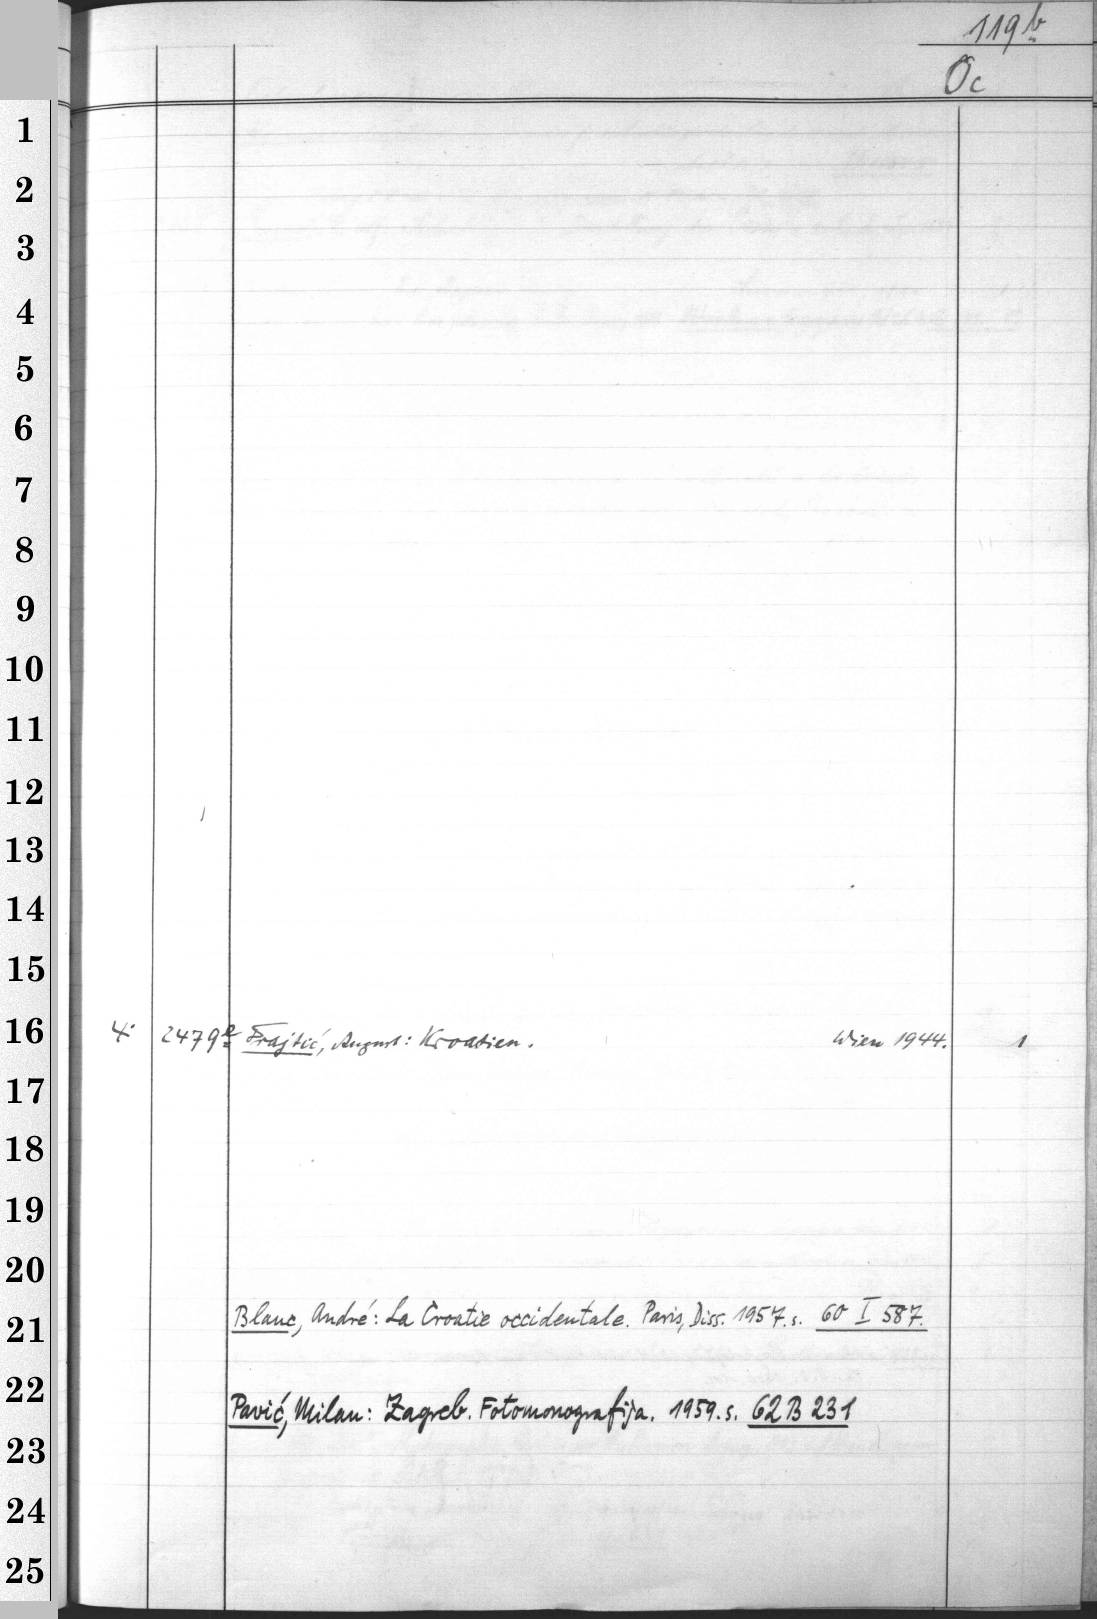 119b
Oc
1
2
3
4
5
6
7
8
9
10
11
12
13
14
15
16 4° 2479a Frajtić, August: Kroatien. Wien 1944. 1
17
18
19
20
21 Blanc, André: La Croatie occidentale. Paris, Diss. 1957. s. 60 I 587.
22 Pavić, Milan: Zagreb. Fotomonografija. 1959. s. 62 B 231
23
24
25